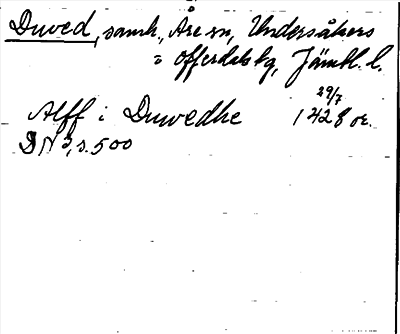 Duved, samh., Åre sn, Undersåkers
o Offerdals tg, Jämtl. l.
29/7
Alff i Duwedhe 1428 or.
DN 3, s. 500